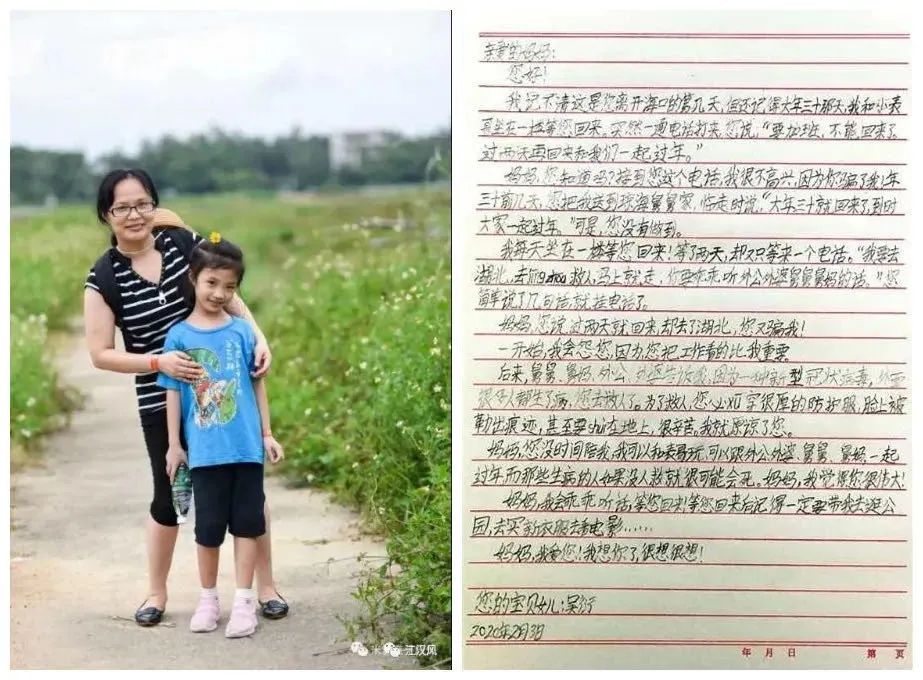 亲爱的妈妈:
您好!
我记不清这是你离开海口的第几天,但还记得大年三十那天,我和小表
哥坐在一楼等您回来,突然一通电话打来,您说,“要加班,不能回来了,
过两天再回来和我们一起过年。”
妈妈,您知道吗?接到您这个电话,我很不高兴,因为你骗了我!年
三十前几天,您把我送到琼海舅舅家,临走时说,“大年三十就回来了,到时
大家一起过年。”可是,您没有做到。
我每天坐在一楼等您回来!等了两天,却又只等来一个电话。“我要去
湖北,去jīngzhōu救人,马上就走,你要乖乖听外公外婆舅舅舅妈的话。”您
简单说了几句话,就挂电话了。
妈妈,您说,过两天就回来,却去了湖北,您又骗我!
一开始,我会怨您,因为您把工作看的比我重要
后来,舅舅、舅妈、外公、外婆告诉我,因为一种新型冠状病毒,外面
很多人都生了病,您去救人了。为了救人,您必xū穿很厚的防护服,脸上被
勒出痕迹,甚至要shuì在地上,很辛苦,我就原谅了您。
妈妈,您没时间陪我,我可以和表哥玩,可以跟外公外婆、舅舅、舅妈一起
过年,而那些生病的人如果没人救就很可能会死。妈妈,我觉得你很伟大!
妈妈,我会乖乖听话,等您回来!等您回来后记得一定要带我去逛公
园,去买新衣服,去看电影……
妈妈,我爱您!我想你了,很想很想!
您的宝贝女儿:吴
2020年2月3日
年 月 日 第 页
江汉风